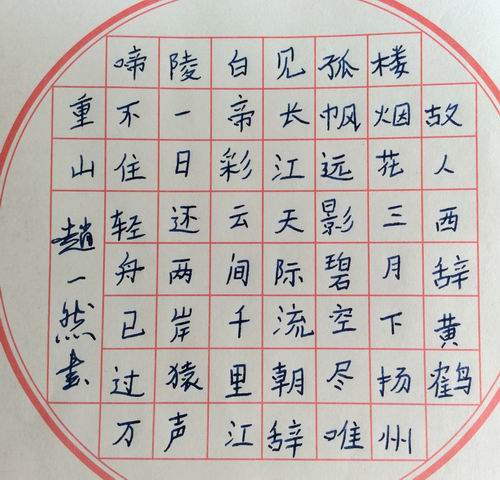 故人西辞黄鹤
楼烟花三月下扬州
孤帆远影碧空尽唯
见长江天际流朝辞
白帝彩云间千里江
陵一日还两岸猿声
啼不住轻舟已过万
重山 趙一然書